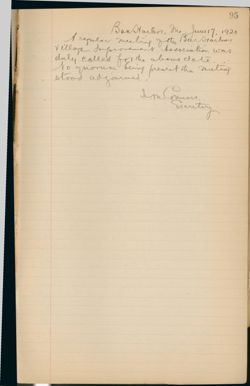 95
Bar Harbor, Me., June 17, 1920
A regular meeting of the Bar Harbor
Village Improvement Association was
duly called for the above date.
No quorum being present the meeting
stood adjourned.
Secretary